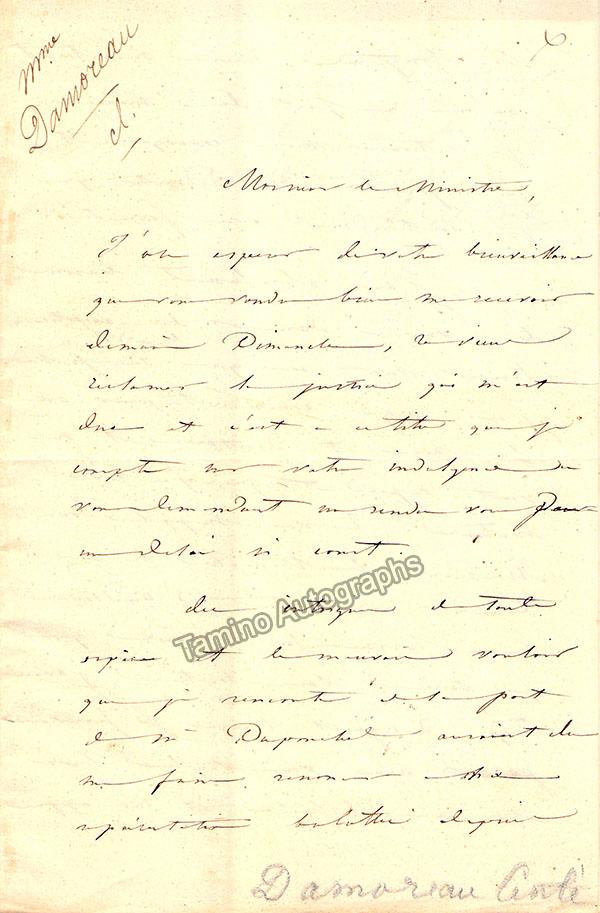 Mme
Damoreau
Monsieur le Ministre,
J'ose espérer de votre bienveillance
que vous voudrez bien me recevoir
demain Dimanche, je viens
réclamer la justice qui m'est
due et c'est à ce titre que je
compte sur votre indulgence en
vous demandant un rendez vous dans
un délai si court.
des intrigues de toute
espèce et le mauvais vouloir
que je rencontre de la part
de Mr Duponchel auraient du
me faire renoncer à
représentation depuis
Tamino Autographs
Damoreau Cinti